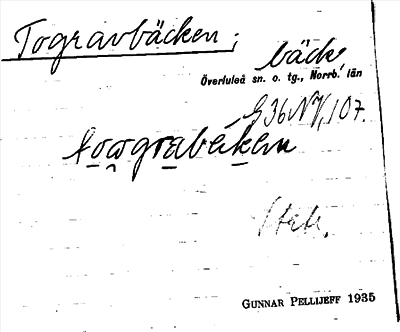 Togravbäcken;
bäck
Överluleå sn. o. tg., Norrb. län
G 36 NV, 107.
GUNNAR PELLIJEFF 1935